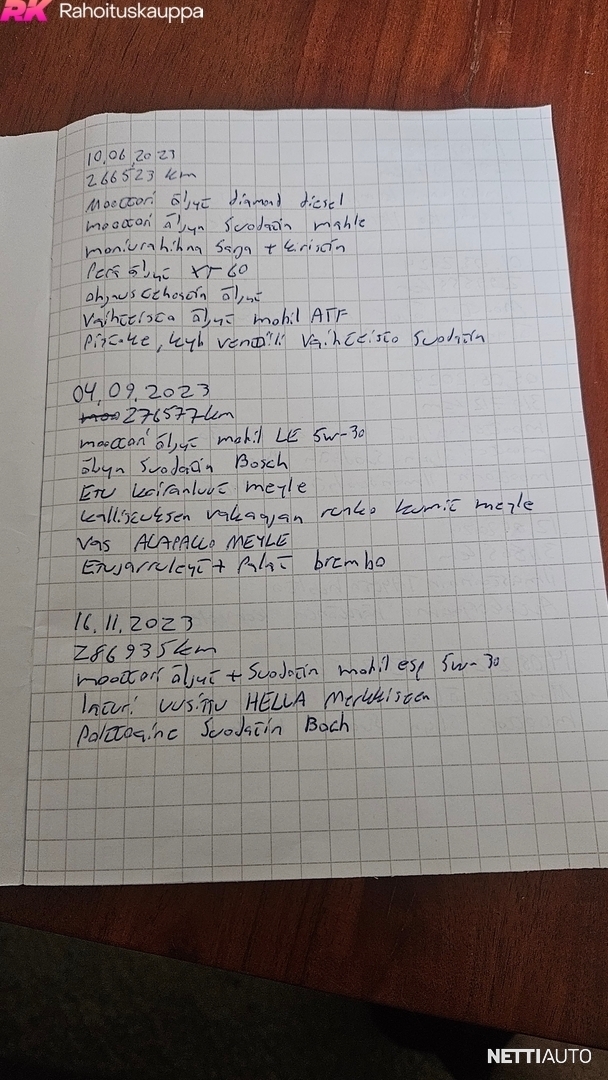 RK Rahoituskauppa
10.06.2023
266523 km
moottori öljyt diamond diesel
moottori öljyn Suodatin mahle
moniurahihna Saga + kiristin
Perä öljyt XT 60
ohjaustehostin öljyt
Vaihteisto öljyt mobil ATF
Pistoke, kyb venttiili Vaihteisto Suodatin
04.09.2023
276577km
moottori öljyt mobil LE 5w-30
öljyn Suodatin Bosch
Etu koiranluut meyle
kallistuksen vakaajan renko kumit meyle
Vas ALAPALLO MEYLE
Etujarrulevyt + Palat brembo
16.11.2023
286935km
moottori öljyt + Suodatin mobil esp 5w-30
laturi uusittu HELLA Merkkisten
Polttoaine Suodatin Boch
NETTIAUTO